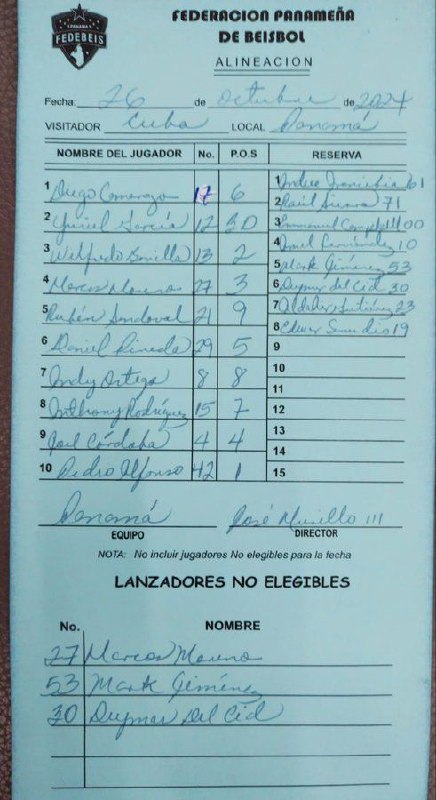 PANAMA
FEDEBEIS
FEDERACION PANAMEÑA
DE BEISBOL
ALINEACION
Fecha: 26 de octubre de 2024
VISITADOR Cuba LOCAL Panamá
NOMBRE DEL JUGADOR No. P.O.S RESERVA
1 Diego 17 6
2 García 12
3 Bonilla 13 2
4 Marcos Moreno 27 3
5 Rubén Sandoval 21 9
6 Daniel Pineda 29 5
7 Indy Ortega 8 8
8 Anthony Rodríguez 15 7
9 Joel Córdoba 4 4
10 Pedro Alfonso 42 1
1 61
2 Raúl 71
3 Emmanuel 00
4 Fernández 10
5 Mark Giménez 53
6 Deymar del Cid 30
7 Gutiérrez 23
8 19
9
10
11
12
13
14
15
Panamá José Murillo III
EQUIPO DIRECTOR
NOTA: No incluir jugadores No elegibles para la fecha
LANZADORES NO ELEGIBLES
No. NOMBRE
27 Marcos Moreno
53 Mark Giménez
30 Deymar Del Cid